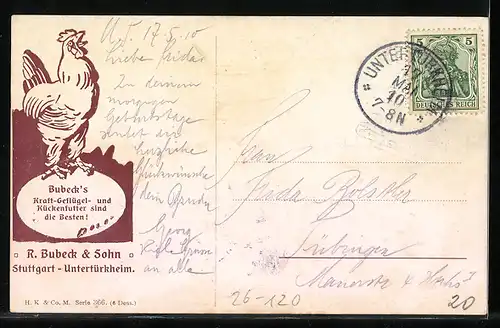 U.T. 17.5.10
Liebe Frida!
Zu deinem
morgigen
Geburtstage
sendet die
herzliche
Glückwünsche
dein Bruder
Georg
Viele Grüsse
an alle
5 5
DEUTSCHES REICH
* UNTERTÜRKHEIM *
17
MAI
10
7-8N
Frau
Frida
Tübingen
26-120
20
Bubeck's
Kraft-Geflügel- und
Kückenfutter sind
die Besten!
R. Bubeck & Sohn
Stuttgart - Untertürkheim.
H. K & Co. M. Serie 366. (6 Dess.)